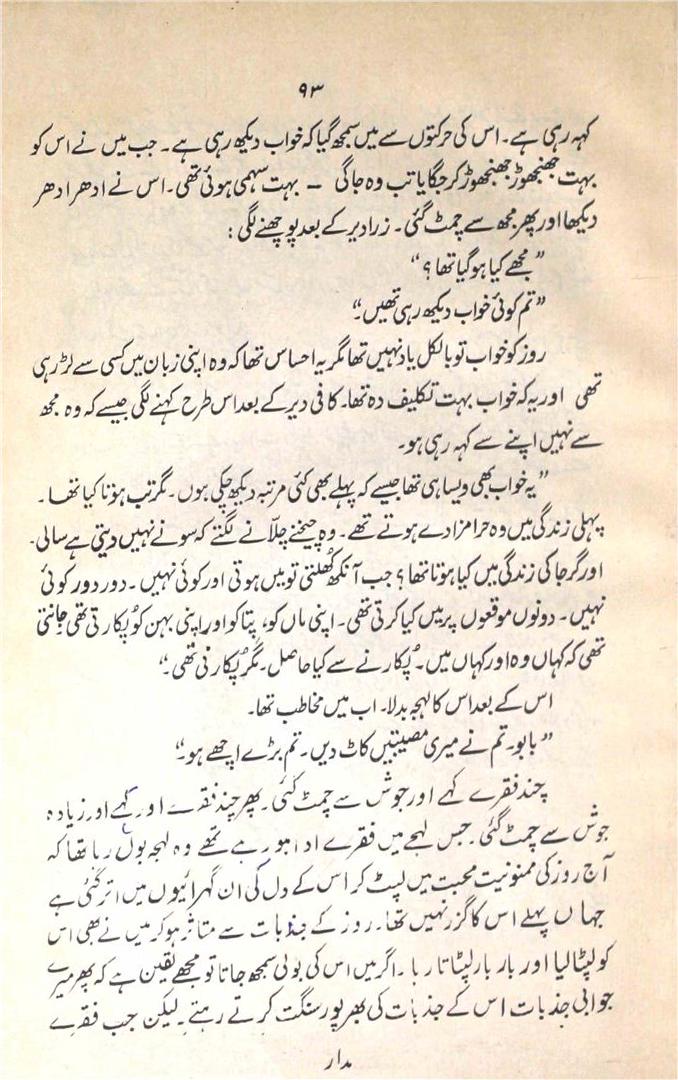 ۹۳
کہہ رہی ہے۔ اس کی حرکتوں سے میں سمجھ گیا کہ خواب دیکھ رہی ہے۔ جب میں نے اس کو
بہت جھنجھوڑ جھنجھوڑ کر جگایا تب وہ جاگی – بہت سہمی ہوئی تھی۔ اس نے ادھر ادھر
دیکھا اور پھر مجھ سے چمٹ گئی۔ زرا دیر کے بعد پوچھنے لگی :
”مجھے کیا ہو گیا تھا ؟“
”تم کوئی خواب دیکھ رہی تھیں۔“
روز کو خواب تو بالکل یاد نہیں تھا مگر یہ احساس تھا کہ وہ اپنی زبان میں کسی سے لڑ رہی
تھی اور یہ کہ خواب بہت تکلیف دہ تھا۔ کافی دیر کے بعد اس طرح کہنے لگی جیسے کہ وہ مجھ
سے نہیں اپنے سے کہہ رہی ہو۔
”یہ خواب بھی ویسا ہی تھا جیسے کہ پہلے بھی کئی مرتبہ دیکھ چکی ہوں۔ مگر تب ہوتا کیا تھا۔
پہلی زندگی میں وہ حرامزادے ہوتے تھے۔ وہ چیخنے چلّانے لگتے کہ سونے نہیں دیتی ہے سالی۔
اور گرجا کی زندگی میں کیا ہوتا تھا؟ جب آنکھ کھُلتی تو میں ہوتی اور کوئی نہیں۔ دور دور کوئی
نہیں۔ دونوں موقعوں پر میں کیا کرتی تھی۔ اپنی ماں کو، پتا کو اور اپنی بہن کو پُکارتی تھی جانتی
تھی کہ کہاں وہ اور کہاں میں۔ پُکارنے سے کیا حاصل۔ مگر پُکارتی تھی۔“
اس کے بعد اس کا لہجہ بدلا۔ اب میں مخاطب تھا۔
”بابو۔ تم نے میری مصیبتیں کاٹ دیں۔ تم بڑے اچھے ہو۔“
چند فقرے کہے اور جوش سے چمٹ گئی۔ پھر چند فقرے اور کہے اور زیادہ
جوش سے چمٹ گئی۔ جس لہجے میں فقرے ادا ہو رہے تھے وہ لہجہ بول رہا تھا کہ
آج روز کی ممنونیت محبت میں لپٹ کر اس کے دل کی ان گہرائیوں میں اتر گئی ہے
جہاں پہلے اس کا گزر نہیں تھا۔ روز کے جذبات سے متاثر ہو کر میں نے بھی اس
کو لپٹا لیا اور بار بار لپٹاتا رہا۔ اگر میں اس کی بولی سمجھ جاتا تو مجھے یقین ہے کہ پھر میرے
جوابی جذبات اس کے جذبات کی بھرپور سنگت کرتے رہتے۔ لیکن جب فقرے
مدار